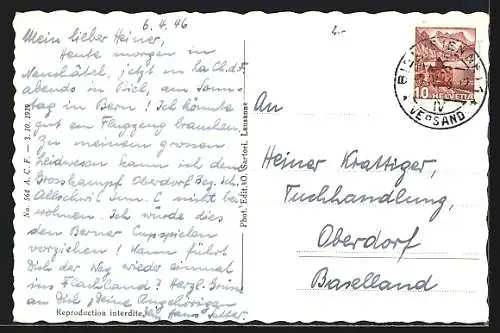 6.4.46
2.-
Mein lieber Heiner,
Heute morgen in
Neuchâtel, jetzt in La Ch.d.F.
abends in Biel, am Sonn-
tag in Bern! Ich könnte
gut ein Flugzeug brauchen.
Zu meinem grossen
Leidwesen kann ich dem
Grosskampf Oberdorf
Allschwil nicht bei-
wohnen. Ich würde dies
den Berner Cupspielen
vorziehen! Wann führt
Dich der Weg wieder einmal
ins Flachland? Herzl. Gruss
an Dich, Deine Angehörigen
Hans
Reproduction interdite.
No. 564 A. C. F. — 3.10.1939
Phot. Edit. AO. Sartori. Lausanne
10 HELVETIA
IV
VERSAND
An
Heiner Krattiger,
Tuchhandlung,
Oberdorf
Baselland